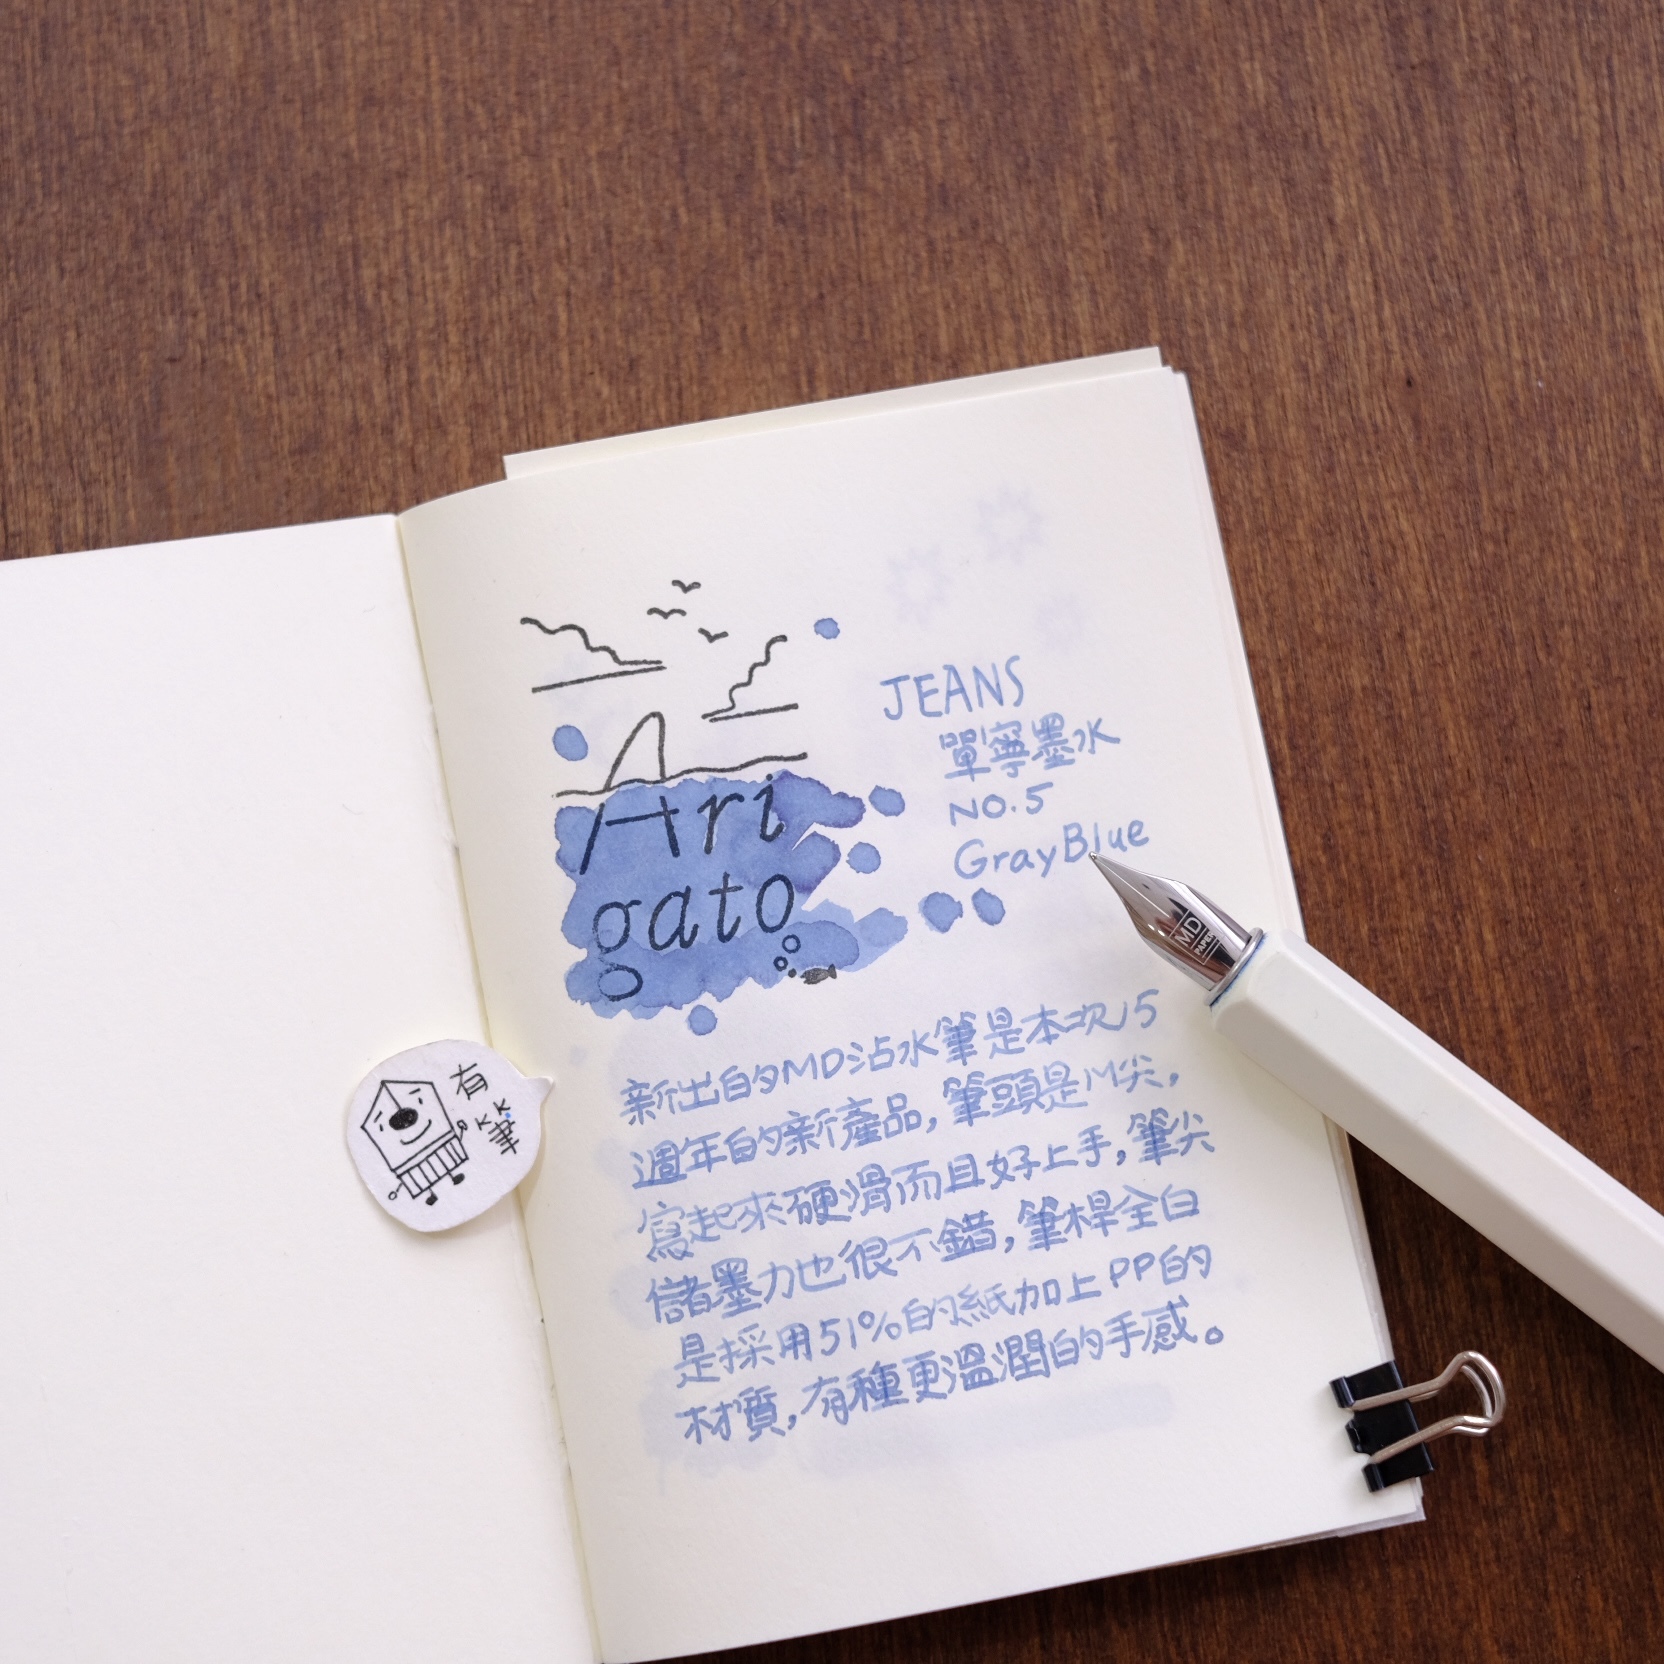 Ari
gato
JEANS
單寧墨水
NO.5
GrayBlue
MD
PAPER
新出的MD沾水筆是本次15
週年的新產品,筆頭是M尖,
寫起來硬滑而且好上手,筆尖
儲墨力也很不錯,筆桿全白
是採用51%的紙加上PP的
材質,有種更溫潤的手感。
有
筆